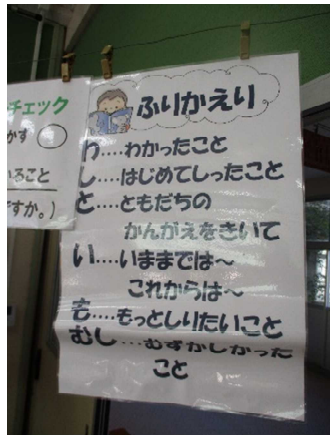 チェック
かす ○
ること
すか。)
ふりかえり
わ....わかったこと
し....はじめてしったこと
と....ともだちの
かんがえをきいて
い....いままでは～
これからは～
も....もっとしりたいこと
むし...むずかしかった
こと